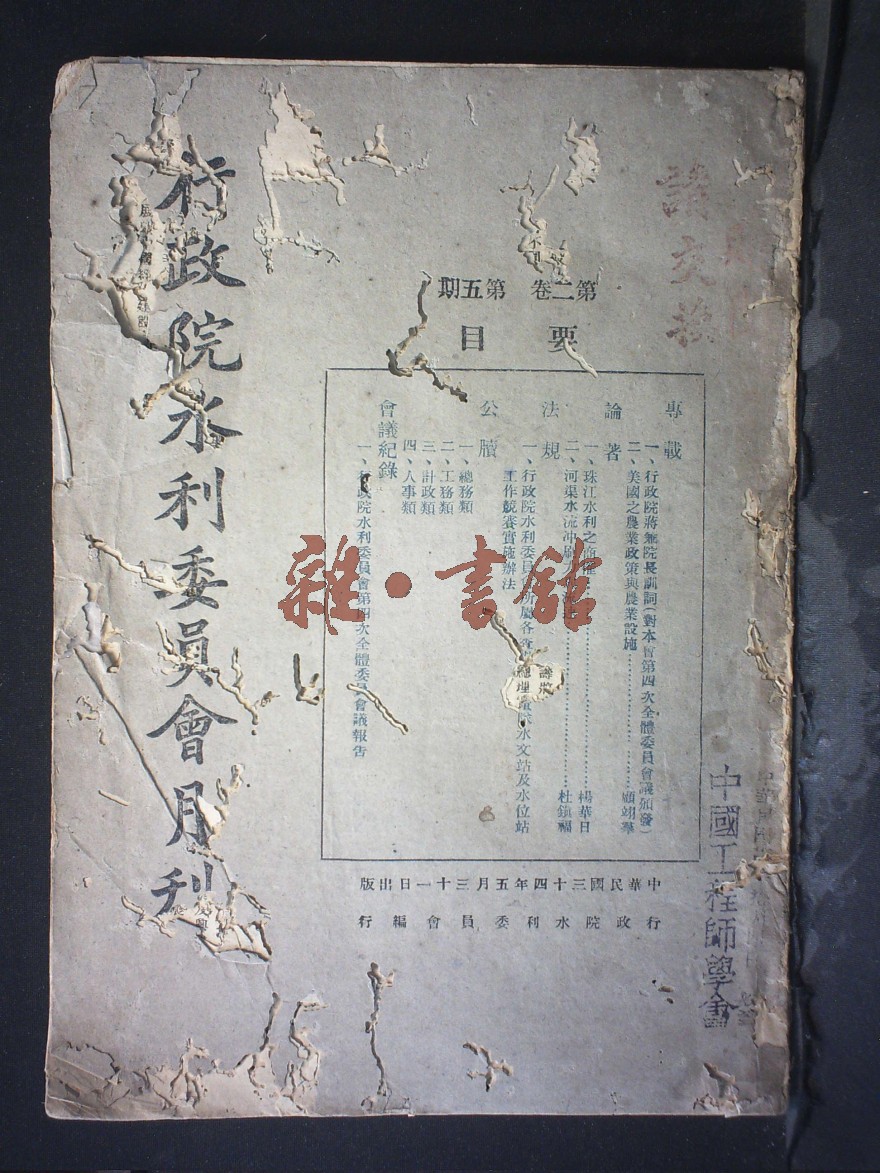 行政院水利委員會月刊
第二卷　第五期
要目
專載
一、行政院蔣兼院長訓詞（對本會第四次全體委員會議頒發）
二、美國之農業政策與農業設施…………顧翊羣
論著
一、珠江水利之…………楊華日
二、河渠水流冲刷…………杜鎮福
法規
一、行政院水利委員會所屬各…水文站及水位站
工作競賽實施辦法
公牘
一、總務類
二、工務類
三、計政類
四、人事類
會議紀錄
一、行政院水利委員會第四次全體委員會議報告
中華民國三十四年五月三十一日出版
行政院水利委員會編行
請交換
中國工程師學會
雜·書館